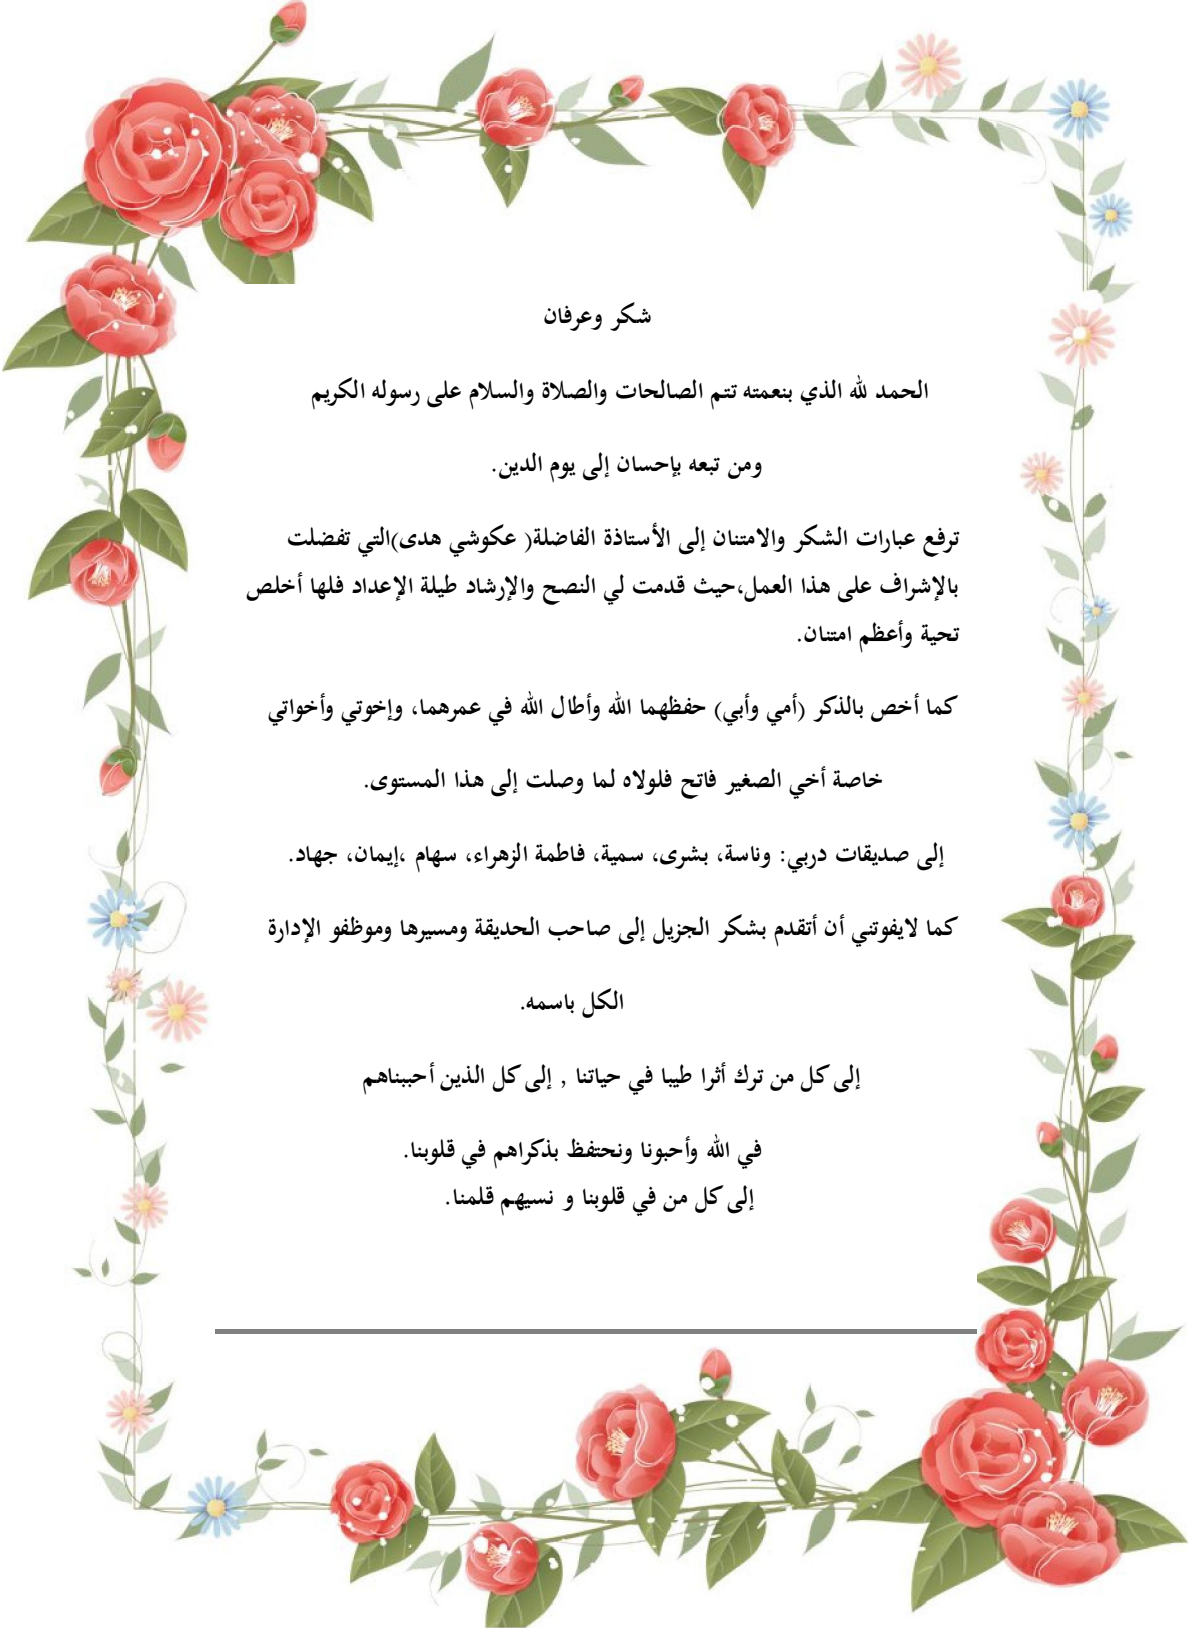 شكر وعرفان
الحمد لله الذي بنعمته تتم الصالحات والصلاة والسلام على رسوله الكريم
ومن تبعه بإحسان إلى يوم الدين.
ترفع عبارات الشكر والامتنان إلى الأستاذة الفاضلة( عكوشي هدى)التي تفضلت
بالإشراف على هذا العمل،حيث قدمت لي النصح والإرشاد طيلة الإعداد فلها أخلص
تحية وأعظم امتنان.
كما أخص بالذكر (أمي وأبي) حفظهما الله وأطال الله في عمرهما، وإخوتي وأخواتي
خاصة أخي الصغير فاتح فلولاه لما وصلت إلى هذا المستوى.
إلى صديقات دربي: وناسة، بشرى، سمية، فاطمة الزهراء، سهام ،إيمان، جهاد.
كما لايفوتني أن أتقدم بشكر الجزيل إلى صاحب الحديقة ومسيرها وموظفو الإدارة
الكل باسمه.
إلى كل من ترك أثرا طيبا في حياتنا , إلى كل الذين أحببناهم
في الله وأحبونا ونحتفظ بذكراهم في قلوبنا.
إلى كل من في قلوبنا و نسيهم قلمنا.